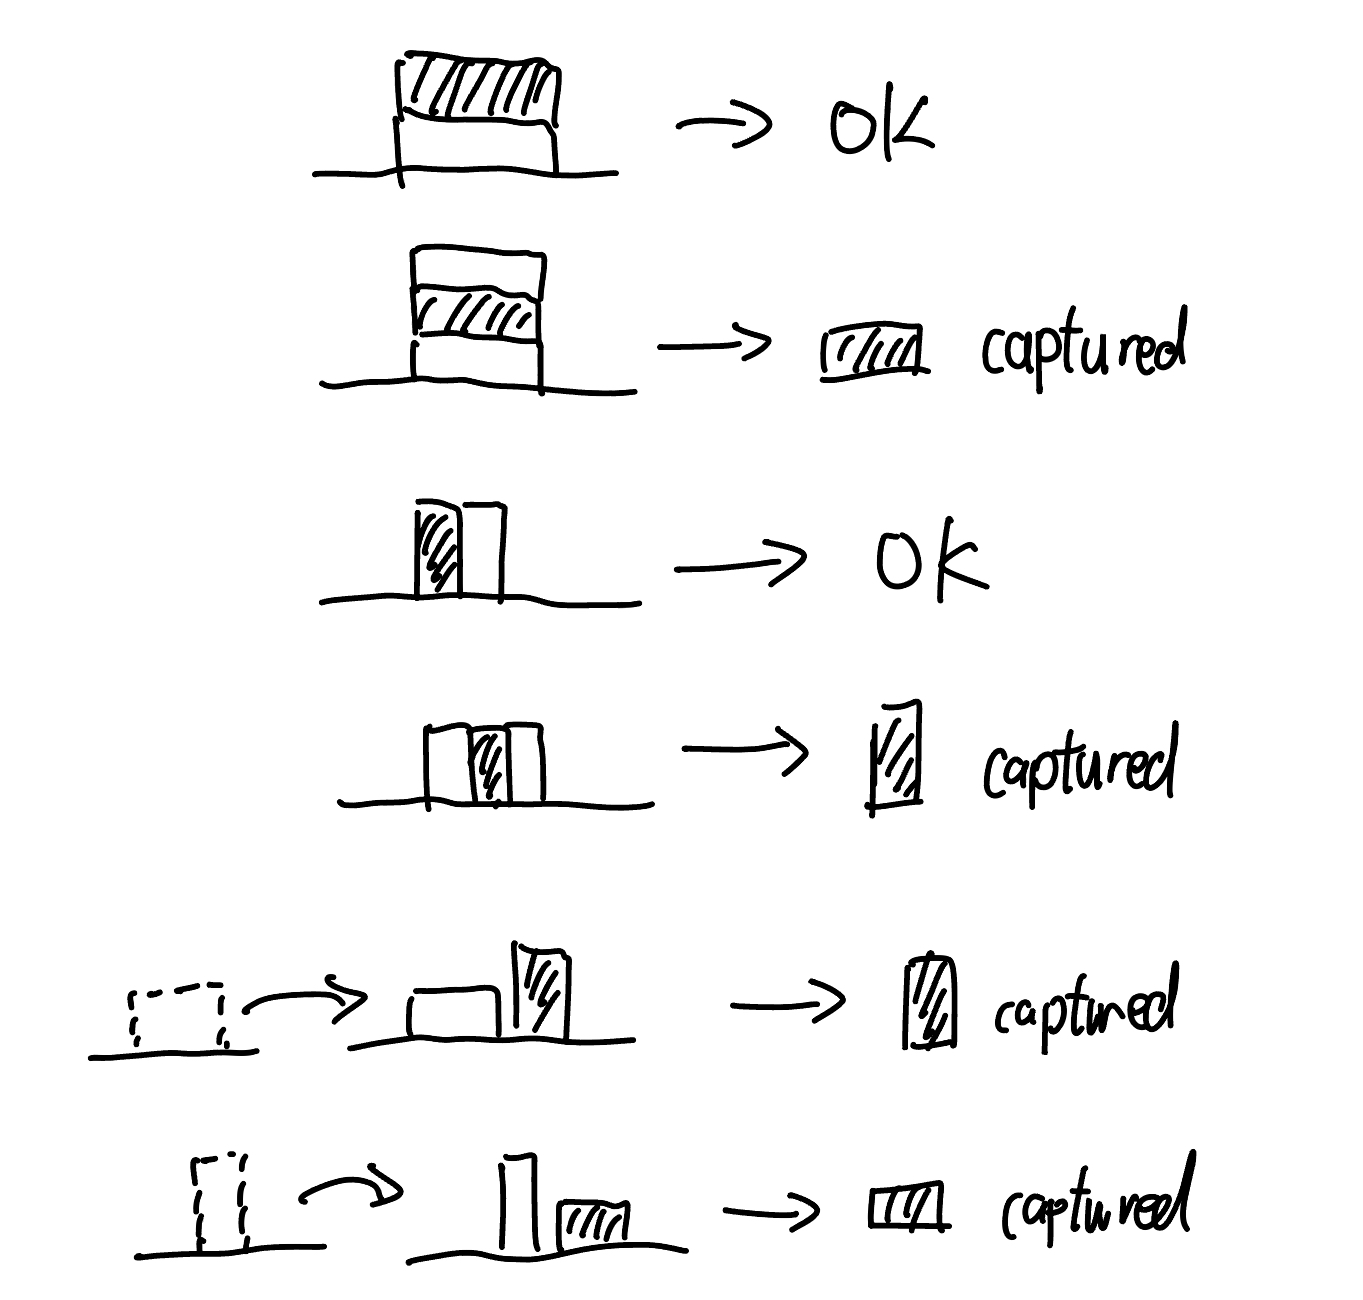 OK
captured
OK
captured
captured
captured